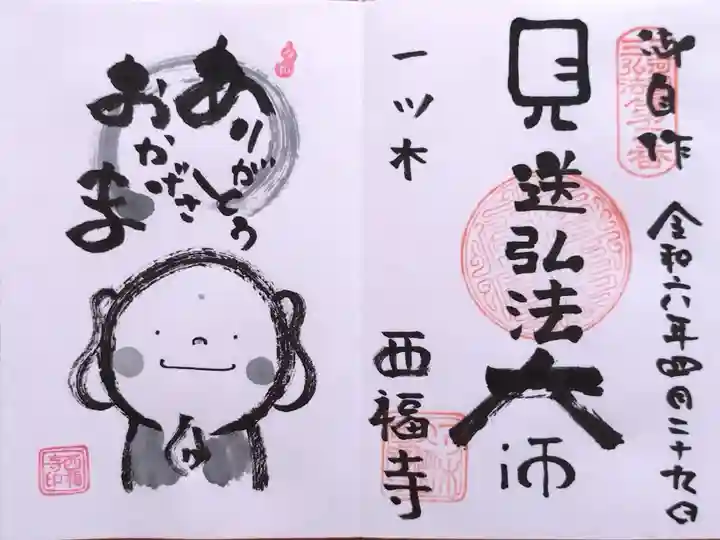 御自作
令和六年四月二十九日
見送弘法大师
一ツ木
西福寺
ありがとう
おかげさま
西福寺印